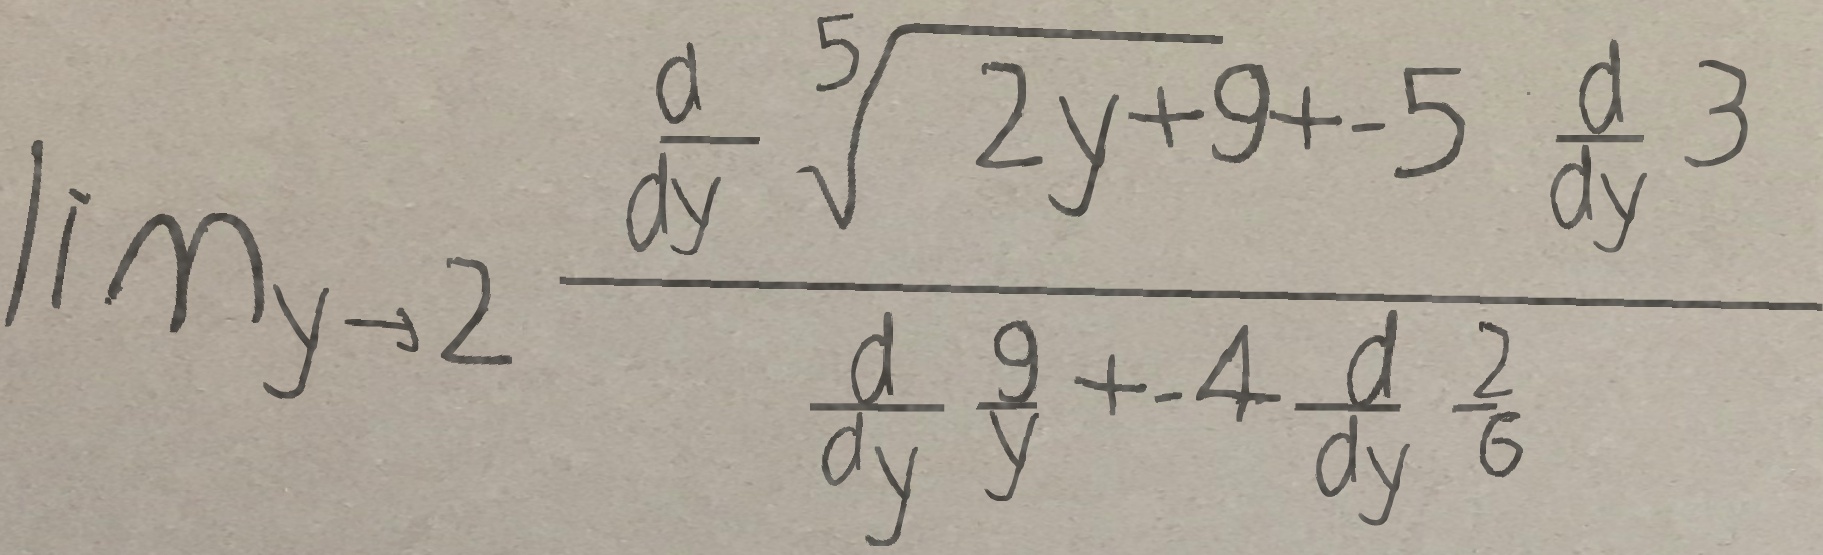 \lim_{y \to 2} \frac{\frac{d}{dy} \sqrt[5]{2y+9} + -5 \frac{d}{dy} 3}{\frac{d}{dy} \frac{9}{y} + -4 \frac{d}{dy} \frac{2}{6}}